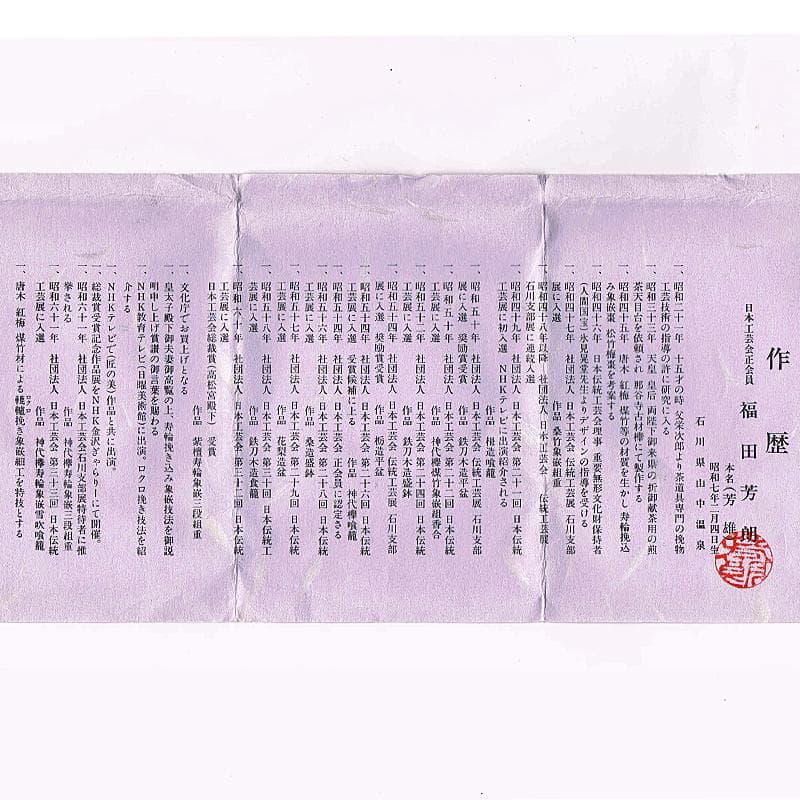 作歴
日本工芸会正会員 福田芳朗
本名(芳雄)
昭和七年二月四日生
石川県山中温泉
一、昭和二十一年 十五才の時 父栄次郎より茶道具専門の挽物
工芸技術の指導の許に研究に入る
一、昭和三十三年 天皇 皇后 両陛下御来県の折御献茶用の煎
茶天目台を依頼され 那谷寺古材欅にて製作する
一、昭和四十五年 唐木 紅梅 煤竹等の材質を生かし寿輪挽込
み象嵌棗 松竹梅棗を考案する
一、昭和四十六年 日本伝統工芸会理事 重要無形文化財保持者
(人間国宝)氷見晃堂先生よりデザインの指導を受ける
一、昭和四十七年 日本工芸会 伝統工芸展 石川支部
展に入選 作品 桑竹象嵌重
一、昭和四十八年以降 社団法人 日本工芸会 伝統工芸展
石川支部展に連続入選
一、昭和四十九年 社団法人 日本工芸会 第二十一回 日本伝統
工芸展に初入選 NHKテレビに出演紹介される
作品 柿造喰籠
一、昭和五十年 社団法人 日本工芸会 伝統工芸展 石川支部
展に入選 奨励賞受賞 作品 鉄刀木造平盆
一、昭和五十年 社団法人 日本工芸会 第二十二回 日本伝統
工芸展に入選 作品 神代欅煤竹象嵌組香合
一、昭和五十四年 社団法人 日本工芸会 伝統工芸展 石川支部
展に入選 奨励賞受賞 作品 栃造平盆
一、昭和五十四年 社団法人 日本工芸会 第二十六回 日本伝統
工芸展に入選 受賞候補に上る 作品 神代欅喰籠
一、昭和五十五年 社団法人 日本工芸会 正会員に認定さる
一、昭和五十二年 社団法人 日本工芸会 第二十四回 日本伝統
工芸展に入選 作品 桑造盛鉢
一、昭和五十六年 社団法人 日本工芸会 第二十八回 日本伝統
工芸展に入選 作品 鉄刀木造盛鉢
一、昭和五十七年 社団法人 日本工芸会 第二十九回 日本伝統
工芸展に入選 作品 花梨造盆
一、昭和五十八年 社団法人 日本工芸会 第三十回 日本伝統工
芸展に入選 作品 鉄刀木造食籠
一、昭和六十年 社団法人 日本工芸会 第三十二回 日本伝統
工芸展に入選
日本工芸会総裁賞(高松宮殿下)受賞
作品 紫檀寿輪象嵌三段組重
文化庁でお買上げとなる
一、皇太子殿下御夫妻御高覧の上、寿輪挽き込み象嵌技法を御説
明申し上げ賞讃の御言葉を賜わる
NHK教育テレビ(日曜美術館)に出演。ロクロ挽き技法を紹
介する
一、NHKテレビで(匠の美)作品と共に出演。
一、総裁賞受賞記念作品展をNHK金沢ぎゃらりーにて開催。
一、昭和六十一年 社団法人 日本工芸会石川支部展特待者に推
挙される 作品 神代欅寿輪象嵌三段組重
一、昭和六十一年 社団法人 日本工芸会 第三十三回 日本伝統
工芸展に入選 作品 神代欅寿輪象嵌雪吹喰籠
一、唐木 紅梅 煤竹材による轆轤挽き象嵌細工を特技とする